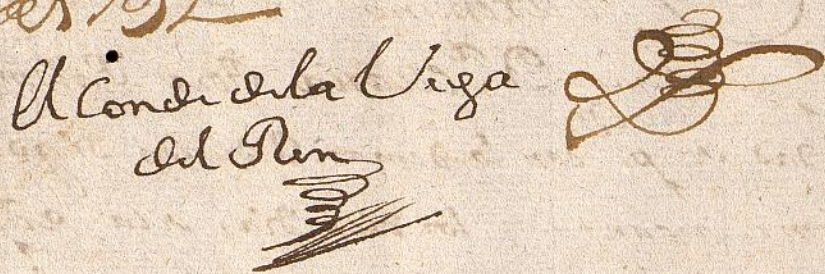 El Conde de la Vega
del Ren